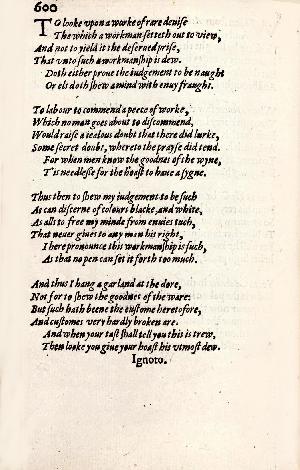 600
To looke vpon a worke of rare deuise
The which a workman setteth out to view,
And not to yield it the deserued prise,
That vnto such a workmanship is dew.
Doth either proue the iudgement to be naught
Or els doth shew a mind with enuy fraught.
To labour to commend a peece of worke,
Which no man goes about to discommend,
Would raise a iealous doubt that there did lurke,
Some secret doubt, whereto the prayse did tend.
For when men know the goodnes of the wyne,
T'is needlesse for the hoast to haue a sygne.
Thus then to shew my iudgement to be such
As can discerne of colours blacke, and white,
As alls to free my minde from enuies tuch,
That neuer giues to any man his right,
I here pronounce this workmanship is such,
As that no pen can set it forth too much.
And thus I hang a garland at the dore,
Not for to shew the goodnes of the ware:
But such hath beene the custome heretofore,
And customes very hardly broken are.
And when your tast shall tell you this is trew,
Then looke you giue your hoast his vtmost dew.
Ignoto.